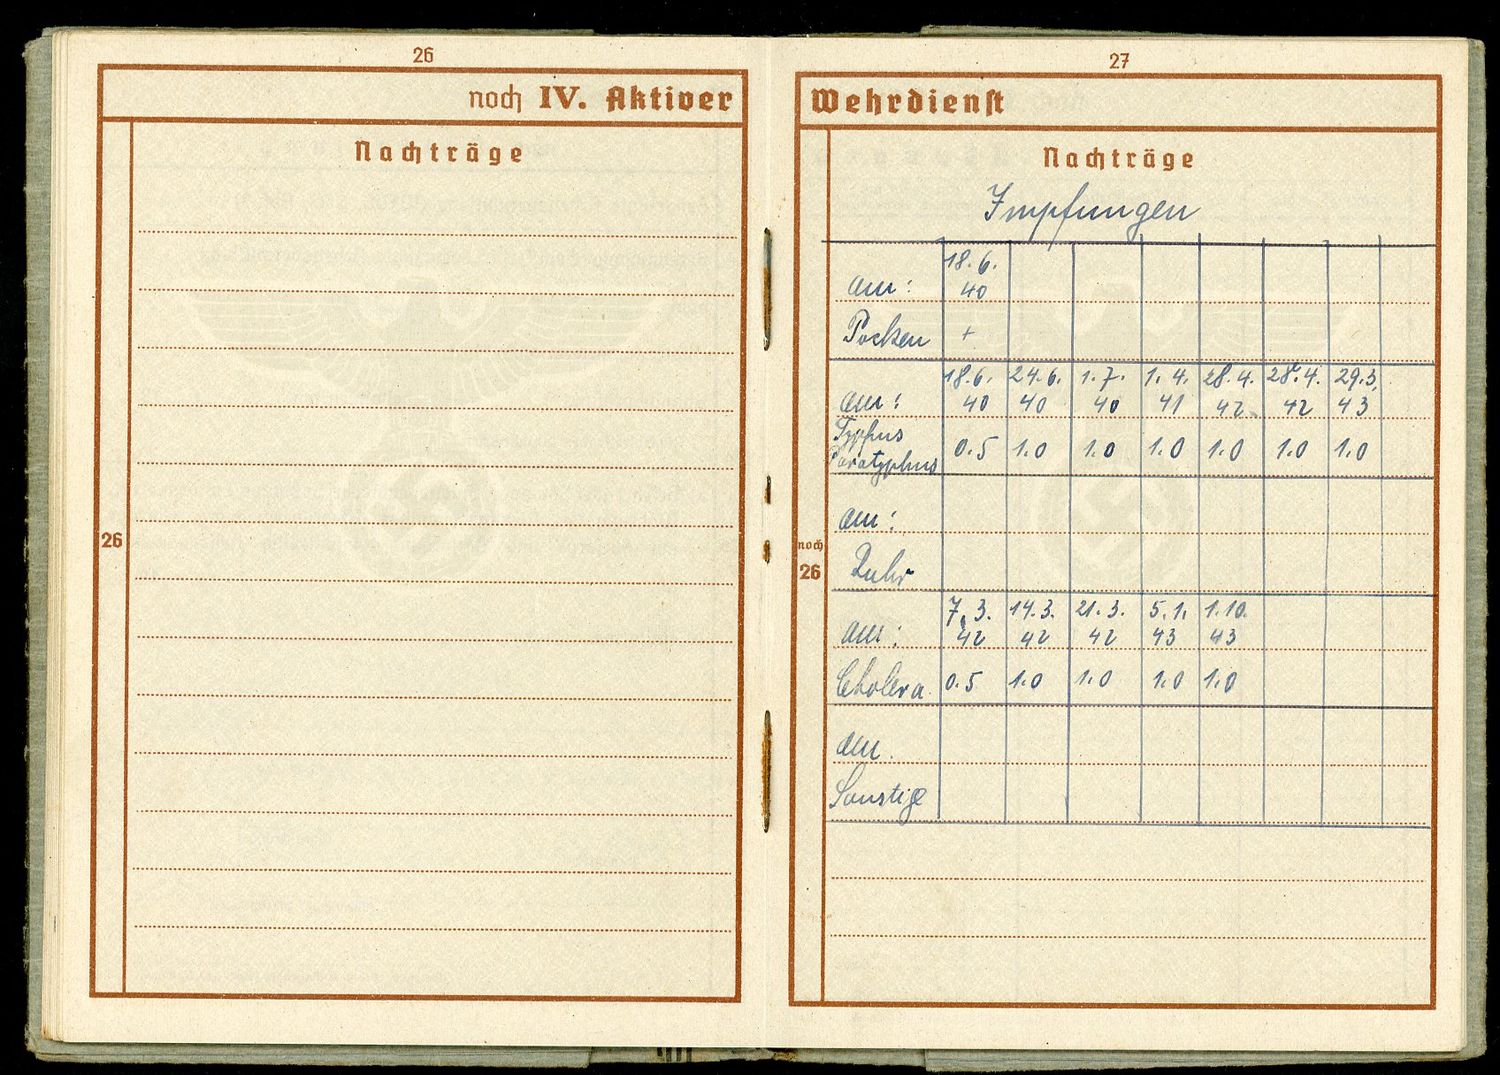 26
noch IV. Aktiver
Nachträge
26
27
Wehrdienst
Nachträge
Impfungen
18.6.
am: 40
Pocken +
18.6. 24.6. 1.7. 1.4. 28.4. 28.4. 29.3.
am: 40 40 40 41 42 42 43
Typhus
Paratyphus 0.5 1.0 1.0 1.0 1.0 1.0 1.0
am:
noch
26 Ruhr
7.3. 14.3. 21.3. 5.1. 1.10.
am: 42 42 42 43 43
Cholera 0.5 1.0 1.0 1.0 1.0
am.
Sonstige